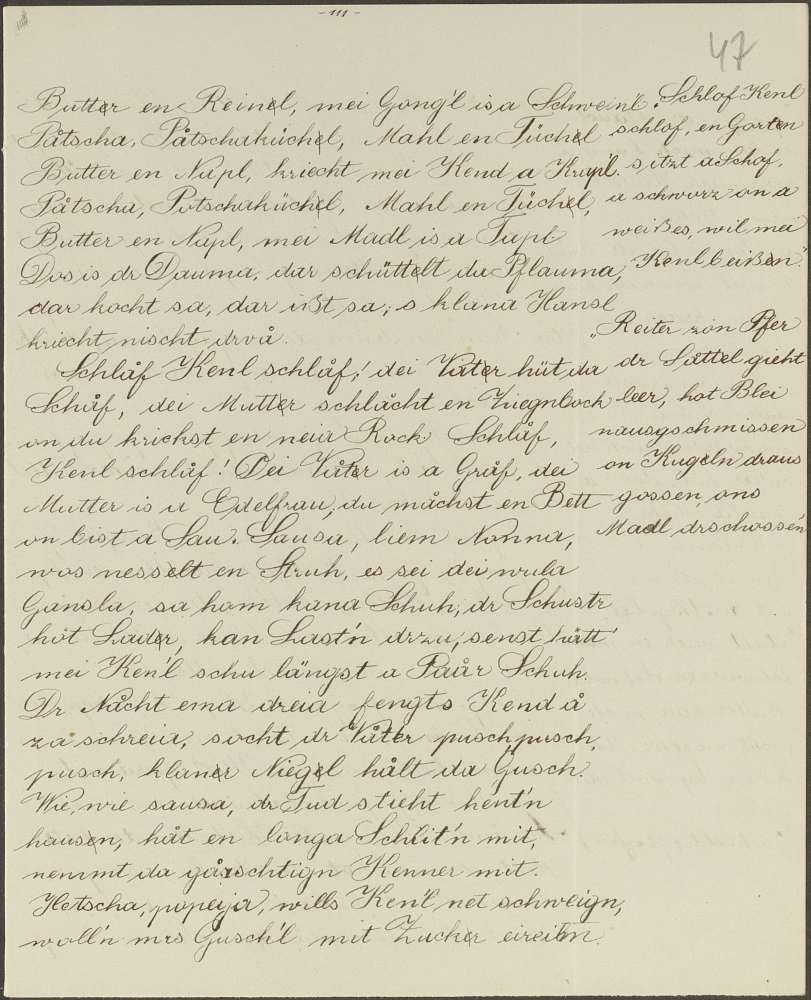 -111-
47
Butter en Reinel, mei Gong'l is a Schwein'l.
Påtscha, Påtschaküchel, Mahl en Tüchel
Butter en Napl, kriecht mei Kend a Krapl.
Påtscha, Potschaküchel, Mahl en Tüchel,
Butter en Napl, mei Madl is a Tapl
Dos is dr Dauma, dar schüttelt da Pflauma,
dar kocht sa, dar ißt sa; s klana Hansl
kriecht nischt drvå.
Schlåf Kenl schlåf! dei Våter hüt da
Schåf, dei Mutter schlåcht en Ziegnbock
on du krichst en neia Rock Schlåf,
Kenl schlåf! Dei Våter is a Gråf, dei
Mutter is a Edelfrau, du måchst en Bett
on bist a Sau. Sausa, liem Nonna,
wos nesselt en Struh, es sei dei wula
Gansla, sa hom kana Schuh, dr Schustr
hot Lader, kan Last'n drzu, senst hått
mei Ken'l schu längst a Paår Schuh.
Dr Nåcht ema dreia fengts Kend å
za schreia, socht dr Våter pusch, pusch,
pusch, klaner Niegel hålt da Gusch.
Wie, wie sausa, dr Tud stieht hent'n
hausen, håt en longa Schlit'n mit,
nemmt da gårschtign Kenner mit.
Hetscha, popeija, wills Ken'l net schweign,
woll'n mrs Gusch'l mit Zucker eireibn.
Schlof Kenl
schlof, en Gorten
sitzt a Schof,
a schworz on a
weißes, wil mei
Kenl beißen"
"Reiter zon Pfer
dr Sattel gieht
leer, hot Blei
nausgschmissen
on Kugeln draus
gossen, ons
Madl drschossen